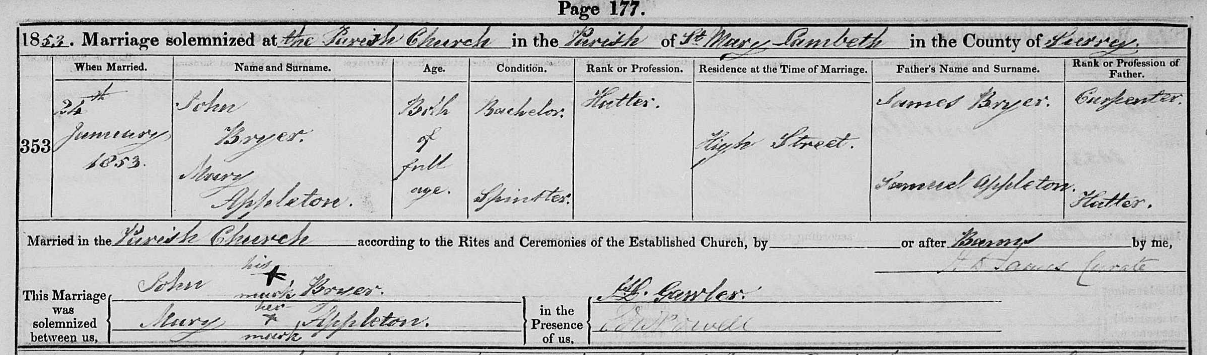 Page 177.
1853. Marriage solemnized at the Parish Church in the Parish of St Mary Lambeth in the County of Surrey.
When Married. Name and Surname. Age. Condition. Rank or Profession. Residence at the Time of Marriage. Father's Name and Surname. Rank or Profession of Father.
353
24th January 1853.
John Bryer.
Mary Appleton.
Both of full age.
Bachelor.
Spinster.
Hatter.
High Street.
James Bryer.
Samuel Appleton.
Carpenter.
Hatter.
Married in the Parish Church according to the Rites and Ceremonies of the Established Church, by or after Banns by me,
James Curate
This Marriage was solemnized between us,
John his mark Bryer.
Mary her mark Appleton.
in the Presence of us.
Gawler.